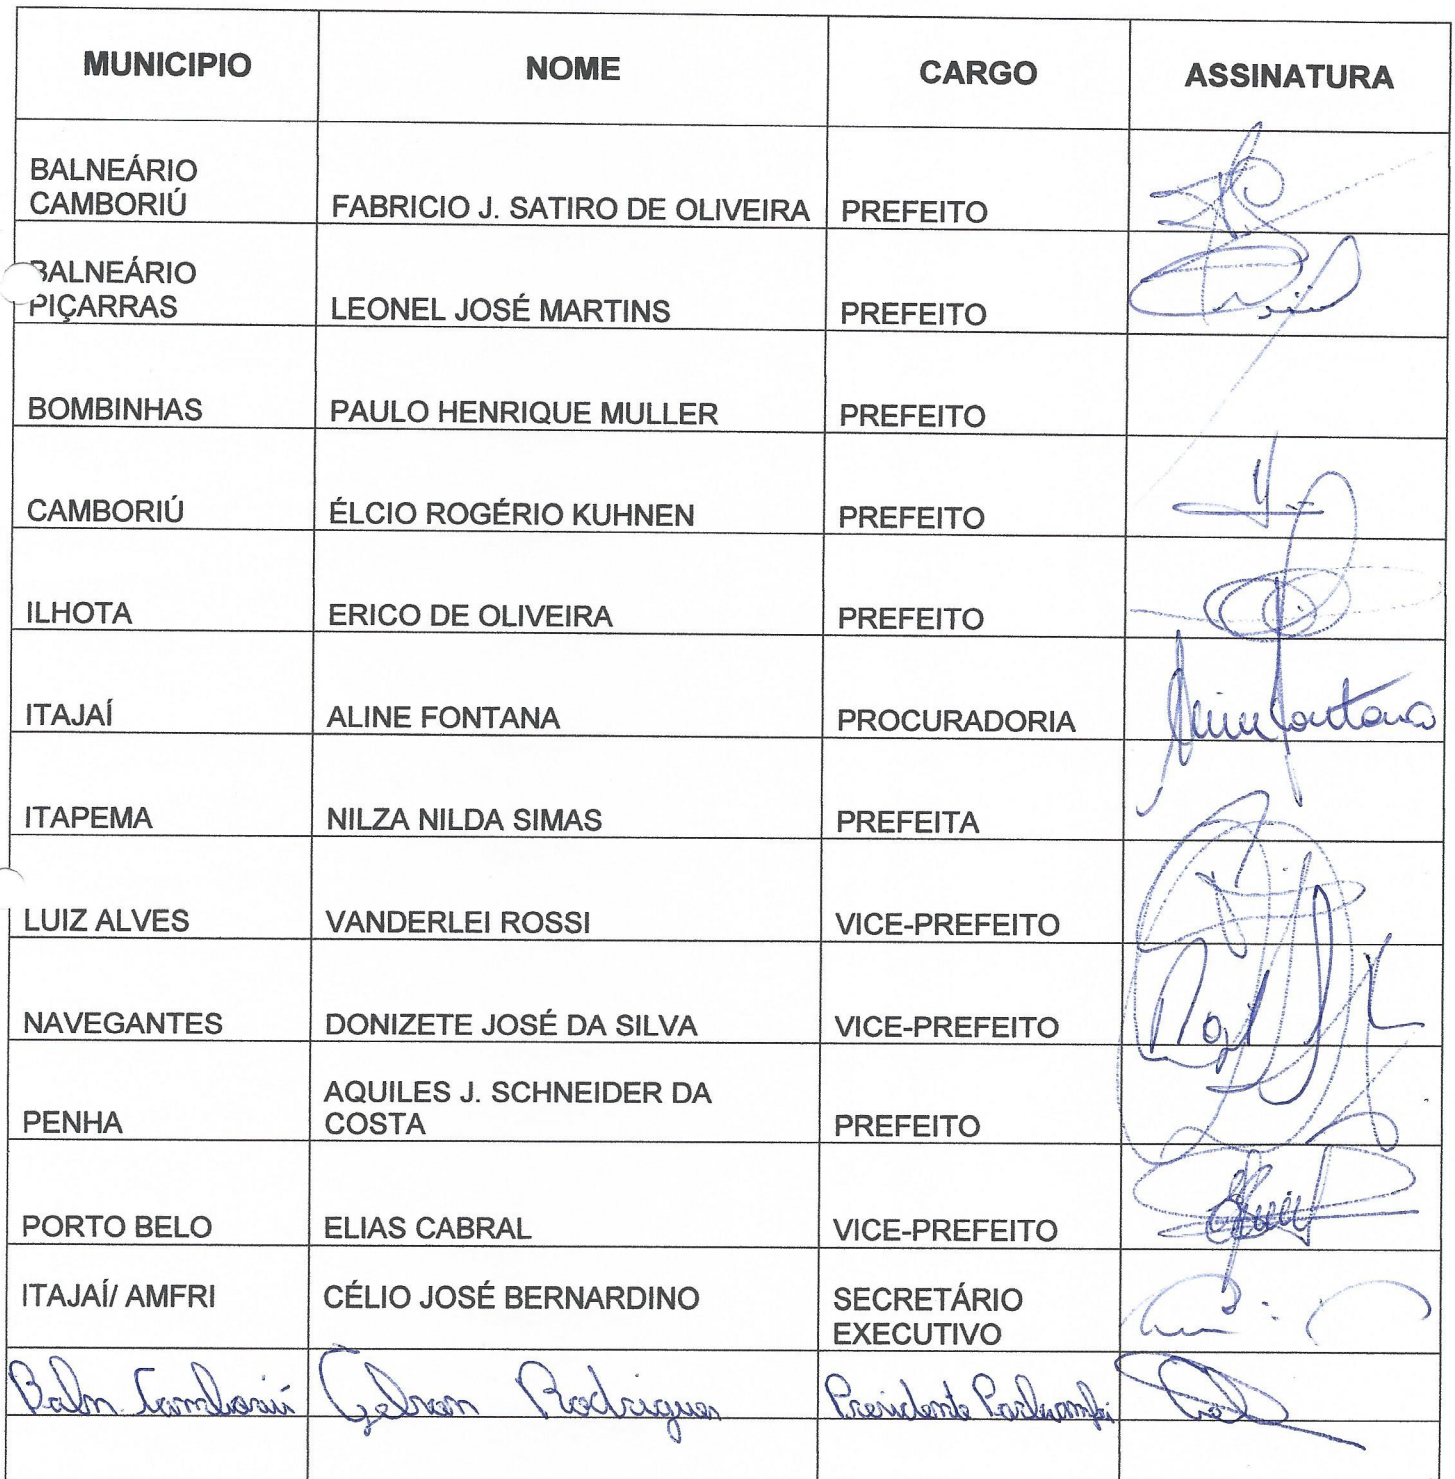 MUNICIPIO NOME CARGO ASSINATURA
BALNEÁRIO
CAMBORIÚ FABRICIO J. SATIRO DE OLIVEIRA PREFEITO
BALNEÁRIO
PIÇARRAS LEONEL JOSÉ MARTINS PREFEITO
BOMBINHAS PAULO HENRIQUE MULLER PREFEITO
CAMBORIÚ ÉLCIO ROGÉRIO KUHNEN PREFEITO
ILHOTA ERICO DE OLIVEIRA PREFEITO
ITAJAÍ ALINE FONTANA PROCURADORIA Aline Fontana
ITAPEMA NILZA NILDA SIMAS PREFEITA
LUIZ ALVES VANDERLEI ROSSI VICE-PREFEITO
NAVEGANTES DONIZETE JOSÉ DA SILVA VICE-PREFEITO
AQUILES J. SCHNEIDER DA
PENHA COSTA PREFEITO
PORTO BELO ELIAS CABRAL VICE-PREFEITO
ITAJAÍ/ AMFRI CÉLIO JOSÉ BERNARDINO SECRETÁRIO
EXECUTIVO
Baln Camboriú Rodrigues Presidente